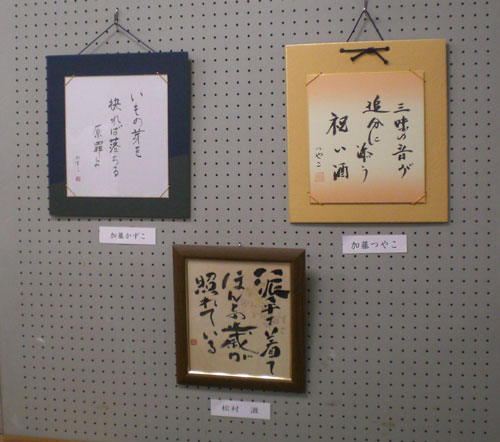 いもの芽を
抉れば落ちる
原罪も
加藤かずこ
三味の音が
追分に添う
祝い酒
つやこ
加藤つやこ
派手に着て
ほんとの歳が
照れている
松村 滋